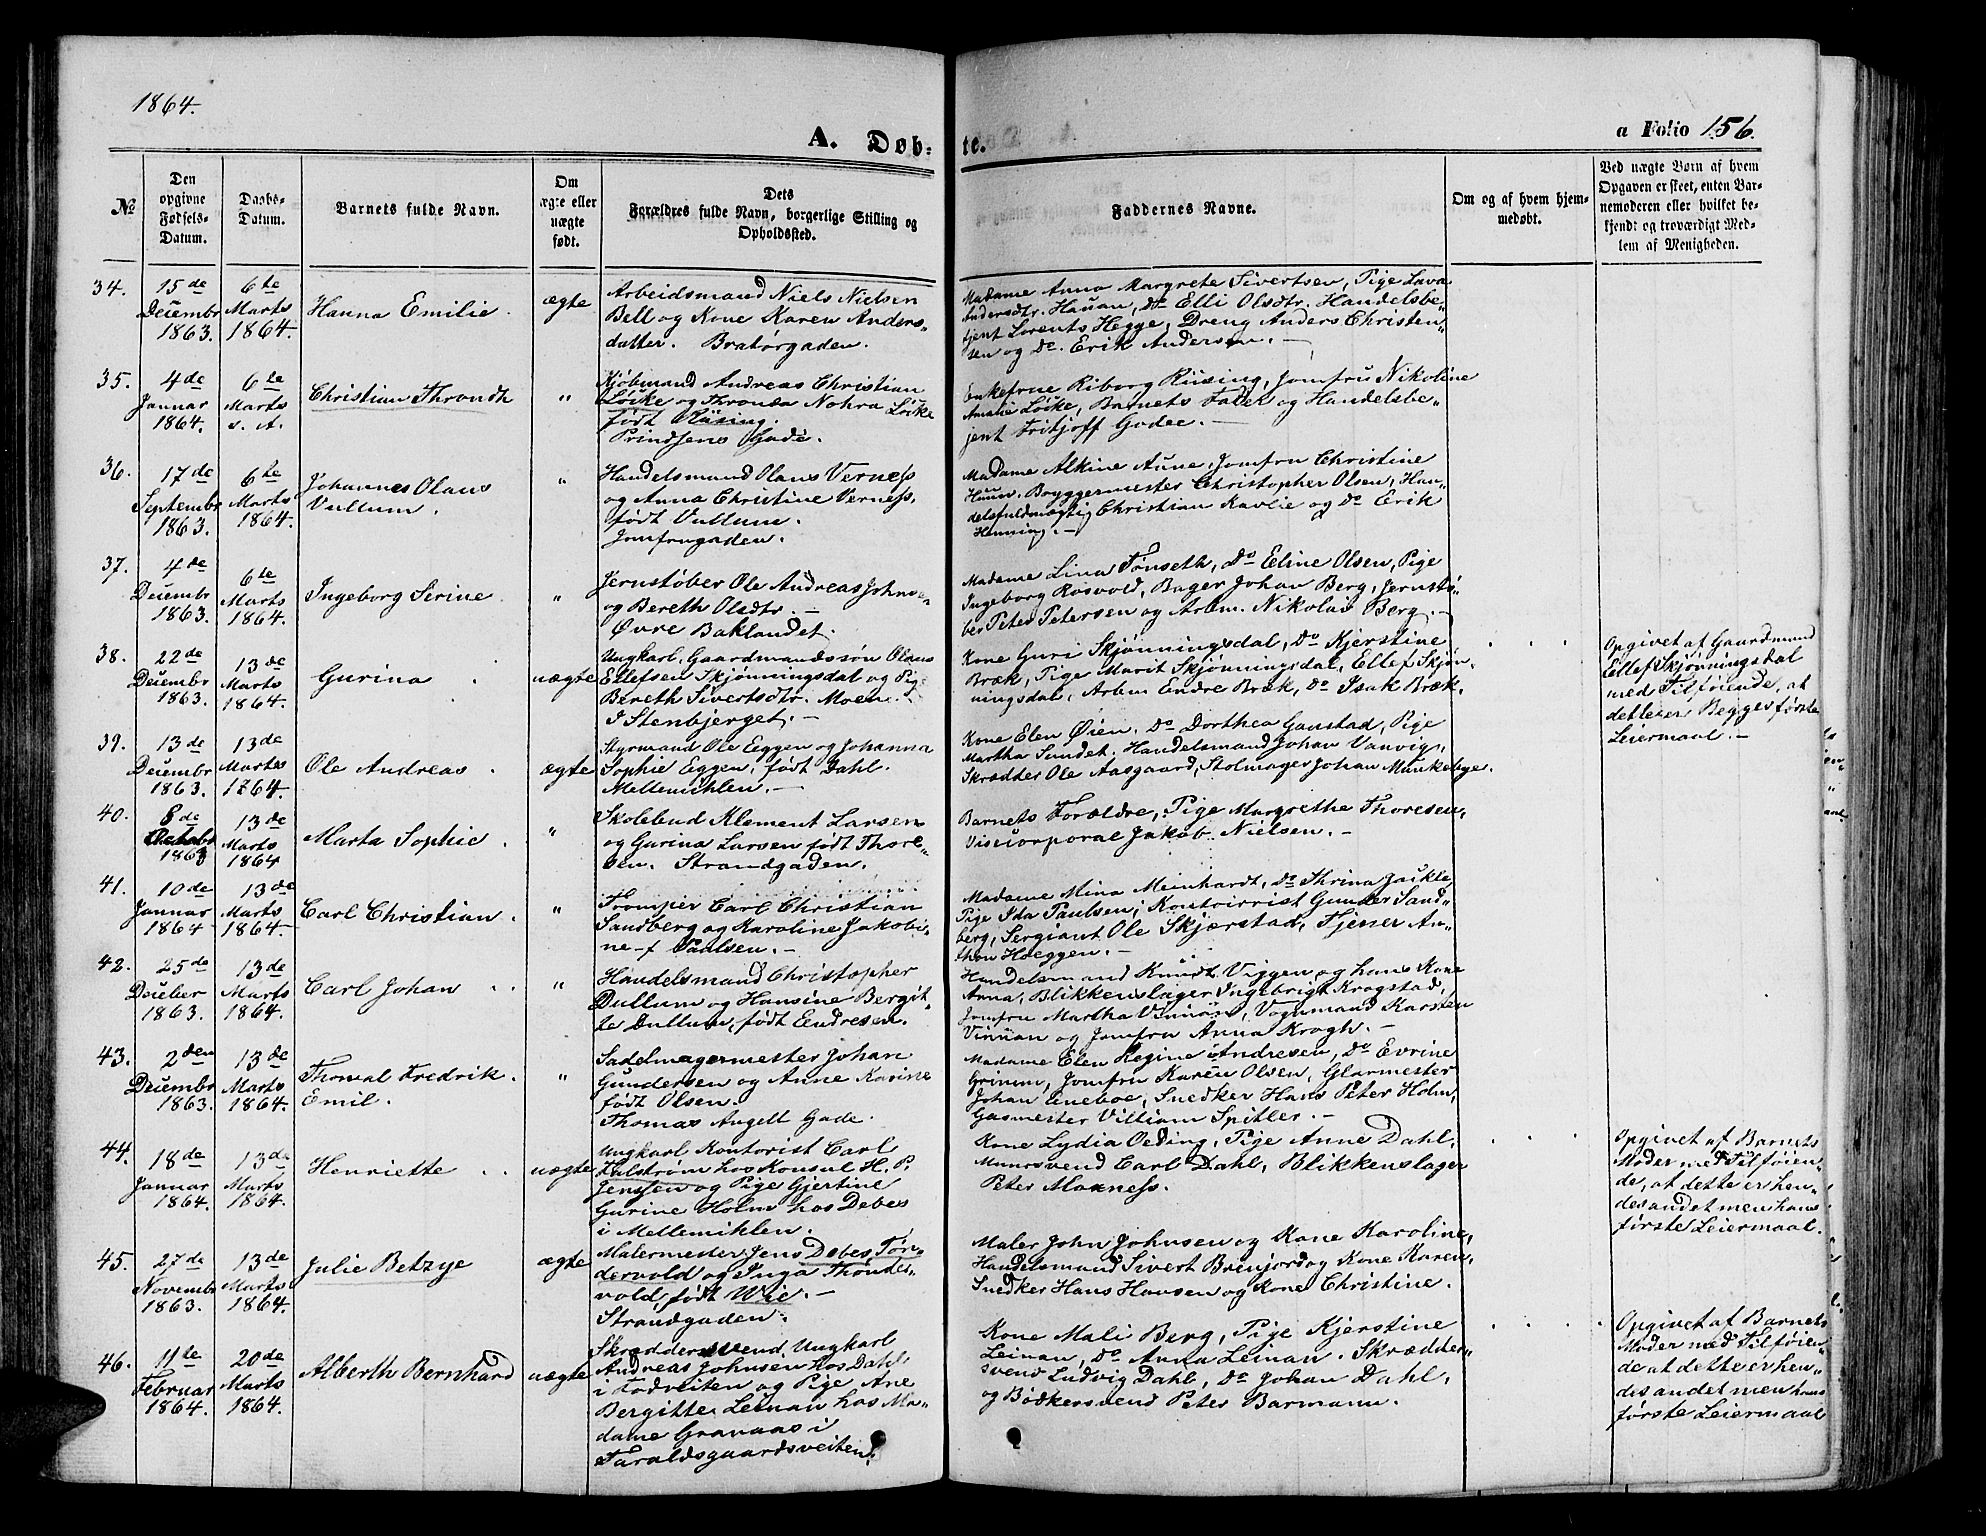 1864.
A. Døb-
te.
a Folio 156.
No
Den
opgivne
Fødsels-
Datum.
Daabs-
Datum.
Barnets fulde Navn.
Om
ægte eller
uægte
født.
Dets
Forældres fulde Navn, borgerlige Stilling og
Opholdssted.
Faddernes Navne.
Om og af hvem hjem-
medøbt.
Ved uægte Børn af hvem
Opgaven er skeet, enten Bar-
nemoderen eller hvilket be-
kjendt og troværdigt Med-
lem af Menigheden.
34.
15de
Decembr
1863.
6te
Marts
1864.
Hanna Emilie.
ægte
Arbeidsmand Niels Nielsen
Bell og Kone Karen Anders-
datter. Bratørgaden.
Madame Anna Margrete Sivertsen, Pige Lava
Andersdtr. Hauan, Do Elli Olsdtr. Handelsbe-
tjent Lorents Hegge, Dreng Anders Christen-
sen og Do. Erik Andersen.
35.
4de
Januar
1864.
6te
Marts
s. A.
Christian Throndh
"
Kjøbmand Andreas Christian
Löcke og Thronda Nohra Löcke
født Rüsing.
Prindsens Gade.
Enkefrue Riborg Rüsing, Jomfru Nikoline
Amalie Löcke, Barnets Fader og Handelsbe-
jent Fritjoff Godee.
36.
17de
Septembr
1863.
6te
Marts
1864.
Johannes Olaus
Vullum.
"
Handelsmand Olaus Verness
og Anna Christine Verness,
født Vullum.
Jomfrugaden.
Madame Alkine Aune, Jomfru Christine
Huun. Bryggermester Christopher Olsen, Han-
delsfuldmægtig Christian Kavlie og Do Erik
Henning.
37.
4de
Decembr
1863.
6te
Marts
1864.
Ingeborg Serine
"
Jernstøber Ole Andreas Johnsen
og Bereth Olsdtr.
Øvre Baklandet.
Madame Lina Tønseth, Do Eline Olsen, Pige
Ingeborg Rosvold, Bager Johan Berg, Jernstø-
ber Peter Petersen og Arbm. Nikolai Berg.
38.
22de
Decembr
1863.
13de
Marts
1864.
Gurina
uægte
Ungkarl, Gaardmandssøn Olaus
Ellefsen Skjønningsdal og Pige
Bereth Sivertsdtr. Moen
I Stenbjerget.
Kone Guri Skjønningsdal, Do Kjerstine
Bræk, Pige Marit Skjønningsdal, Ellef Skjøn-
ningsdal, Arbm Endre Bræk, Do Isak Bræk.
Opgivet af Gaardmand
Ellef Skjønningsdal
med Tilføiende, at
dette er Begges første
Leiermaal.
39.
13de
Decembr
1863.
13de
Martes
1864.
Ole Andreas
ægte
Styrmand Ole Eggen og Johanna
Sophie Eggen, født Dahl.
Mellemiklen.
Kone Elen Øien, Do Dorthea Ganstad, Pige
Martha Sundet. Handelsmand Johan Vanvig,
Skrædder Ole Aasgaard, Stolmager Johan Munkebye.
40.
8de
Octobr
1863
13de
Marts
1864
Marta Sophie
"
Skolebud Klement Larsen
og Gurina Larsen født Thore-
sen. Strandgaden.
Barnets Forældre, Pige Margrethe Thoresen,
Visecorporal Jakob Nielsen.
41.
10de
Januar
1864
13de
Marts
1864.
Carl Christian.
"
Tromper Carl Christian
Sandberg og Karoline Jakobi-
ne f Paulsen.
Madame Mina Meinhardt, Do Thrina Jackle
Pige Ida Paulsen, Kontoirist Gunder Sand-
berg, Sergiant Ole Skjærstad, Tjener An-
thon Hoeggen.
42.
25de
Deceber
1863.
13de
Marts
1864.
Carl Johan
"
Handelsmand Christopher
Dullum og Hansine Bergit-
te Dullum, født Endresen.
Handelsmand Knudt Viggen og hans Kone
Anna, Blikkenslager Ingebrigt Krogstad,
Jomfru Martha Vinnan, Vognmand Karsten
Vinnan og Jomfru Anna Krogh.
43.
2den
Decembr
1863.
13de
Marts
1864.
Thorval Fredrik
Emil.
"
Sadelmagermester Johan
Gundersen og Anne Karine
født Olsen.
Thomas Angell Gade.
Madame Elen Regine Andresen, Do Evrine
Grinim, Jomfru Karen Olsen, Glarmester
Johan Eneboe, Snedker Hans Peter Holm,
Gasmester Villiam Spitler.
44.
18de
Januar
1864.
13de
Marts
1864.
Henriette
uægte
Ungkarl Kontorist Carl
Hulstrøm hos Konsul H. P.
Jenssen og Pige Gjertine
Gurine Holm hos Debes
i Mellemiklen.
Kone Lydia Oeding, Pige Anne Dahl,
Muursvend Carl Dahl, Blikkenslager
Peter Moxness.
Opgivet af Barnets
Moder med Tilføien-
de, at dette er hen-
des andet men hans
første Leiermaal.
45.
27de
Novembr
1863.
13de
Marts
1864.
Julie Betzye
ægte
Malermester Jens Debes Tøn-
dervold og Inga Thonder-
vold, født Wie.
Strandgaden.
Maler John Johnsen og Kone Karoline,
Handelsmand Sivert Brenjord og Kone Karen,
Snedker Hans Hansen og Kone Christine.
46.
11te
Februar
1864.
20de
Marts
1864.
Alberth Bernhard
uægte
Skræddersvend, Ungkarl
Andreas Johnsen hos Dahl
i Fodveiten og Pige Ane
Bergitte Leinan hos Ma-
dame Granaas i
Taraldsgaardsveiten.
Kone Mali Berg, Pige Kjerstine
Leinan, Do Anna Leinan. Skrædder-
svend Ludvig Dahl, Do Johan Dahl,
og Bødkersvend Peter Barmann.
Opgivet af Barnets
Moder med Tilføien-
de at dette er hen-
des andet men hans
første Leiermaal